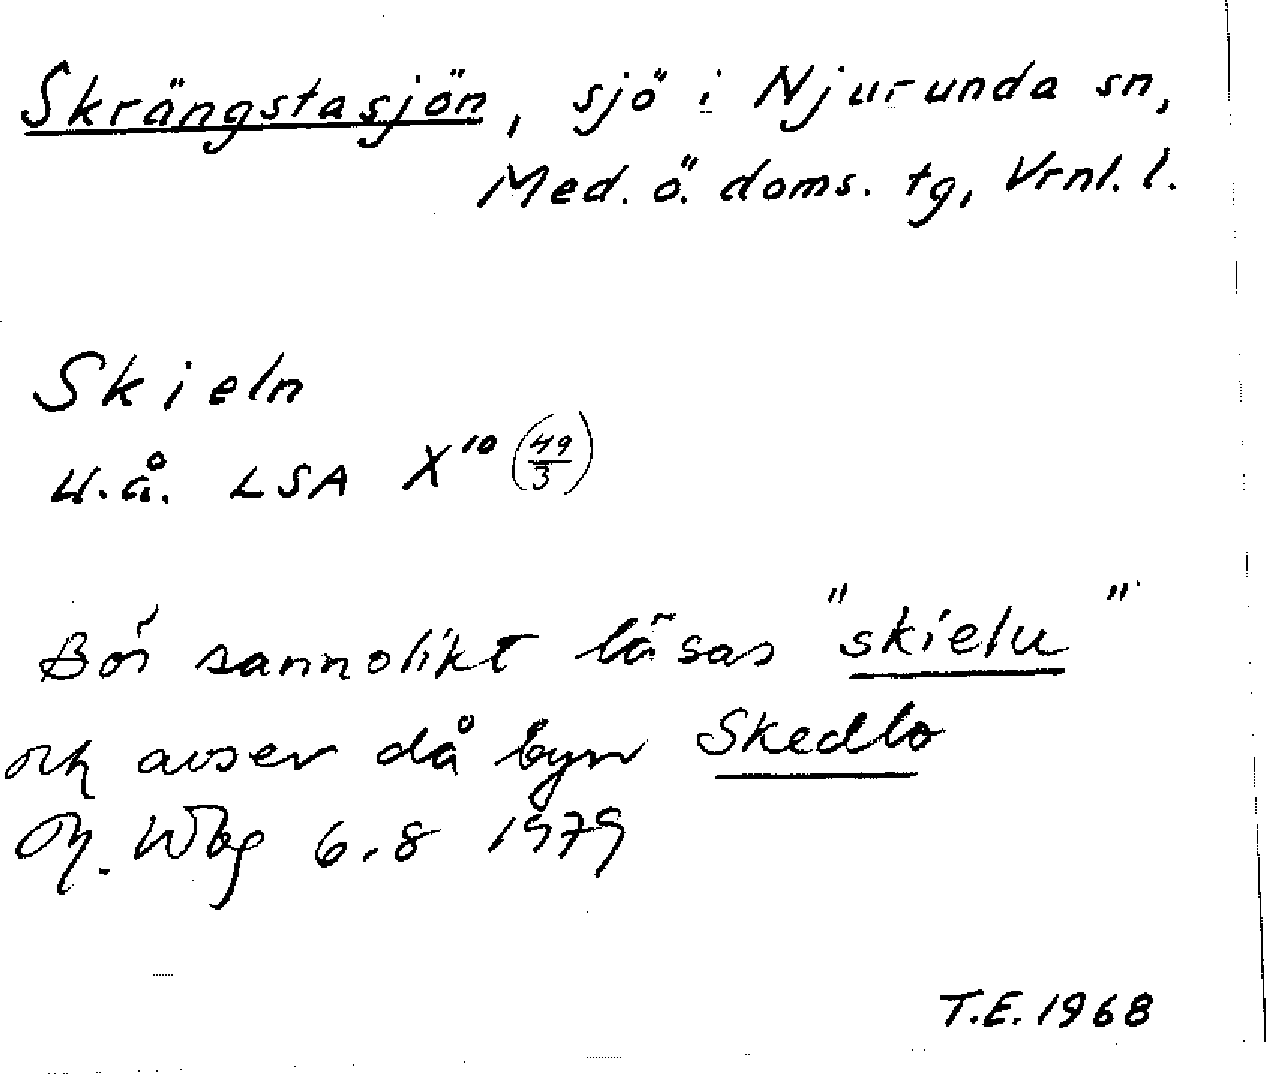 Skrängstasjön, sjö i Njurunda sn,
Med. ö. doms. tg, Vrnl. l.
Skieln
U.å. LSA X¹⁰ (49/3)
Bör sannolikt läsas "skielu"
och avser då byn Skedlo
Wbg 6.8 1979
T.E. 1968